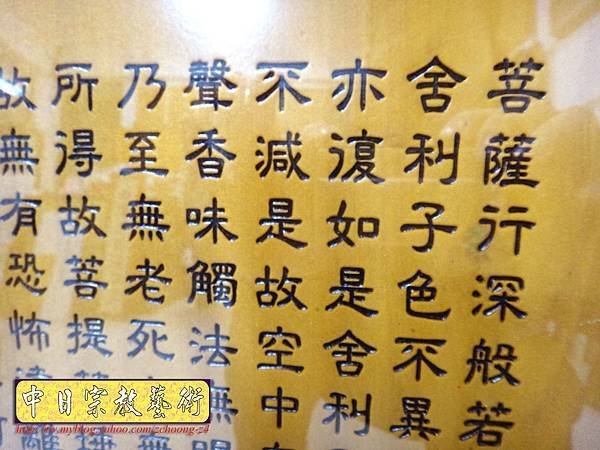 菩薩行深般若
舍利子色不異
亦復如是舍利
不減是故空中
聲香味觸法無
乃至無老死
所得故菩提
故無有恐怖
中日宗教藝術
http://www.myblog.yahoo.com/zchoong-z4